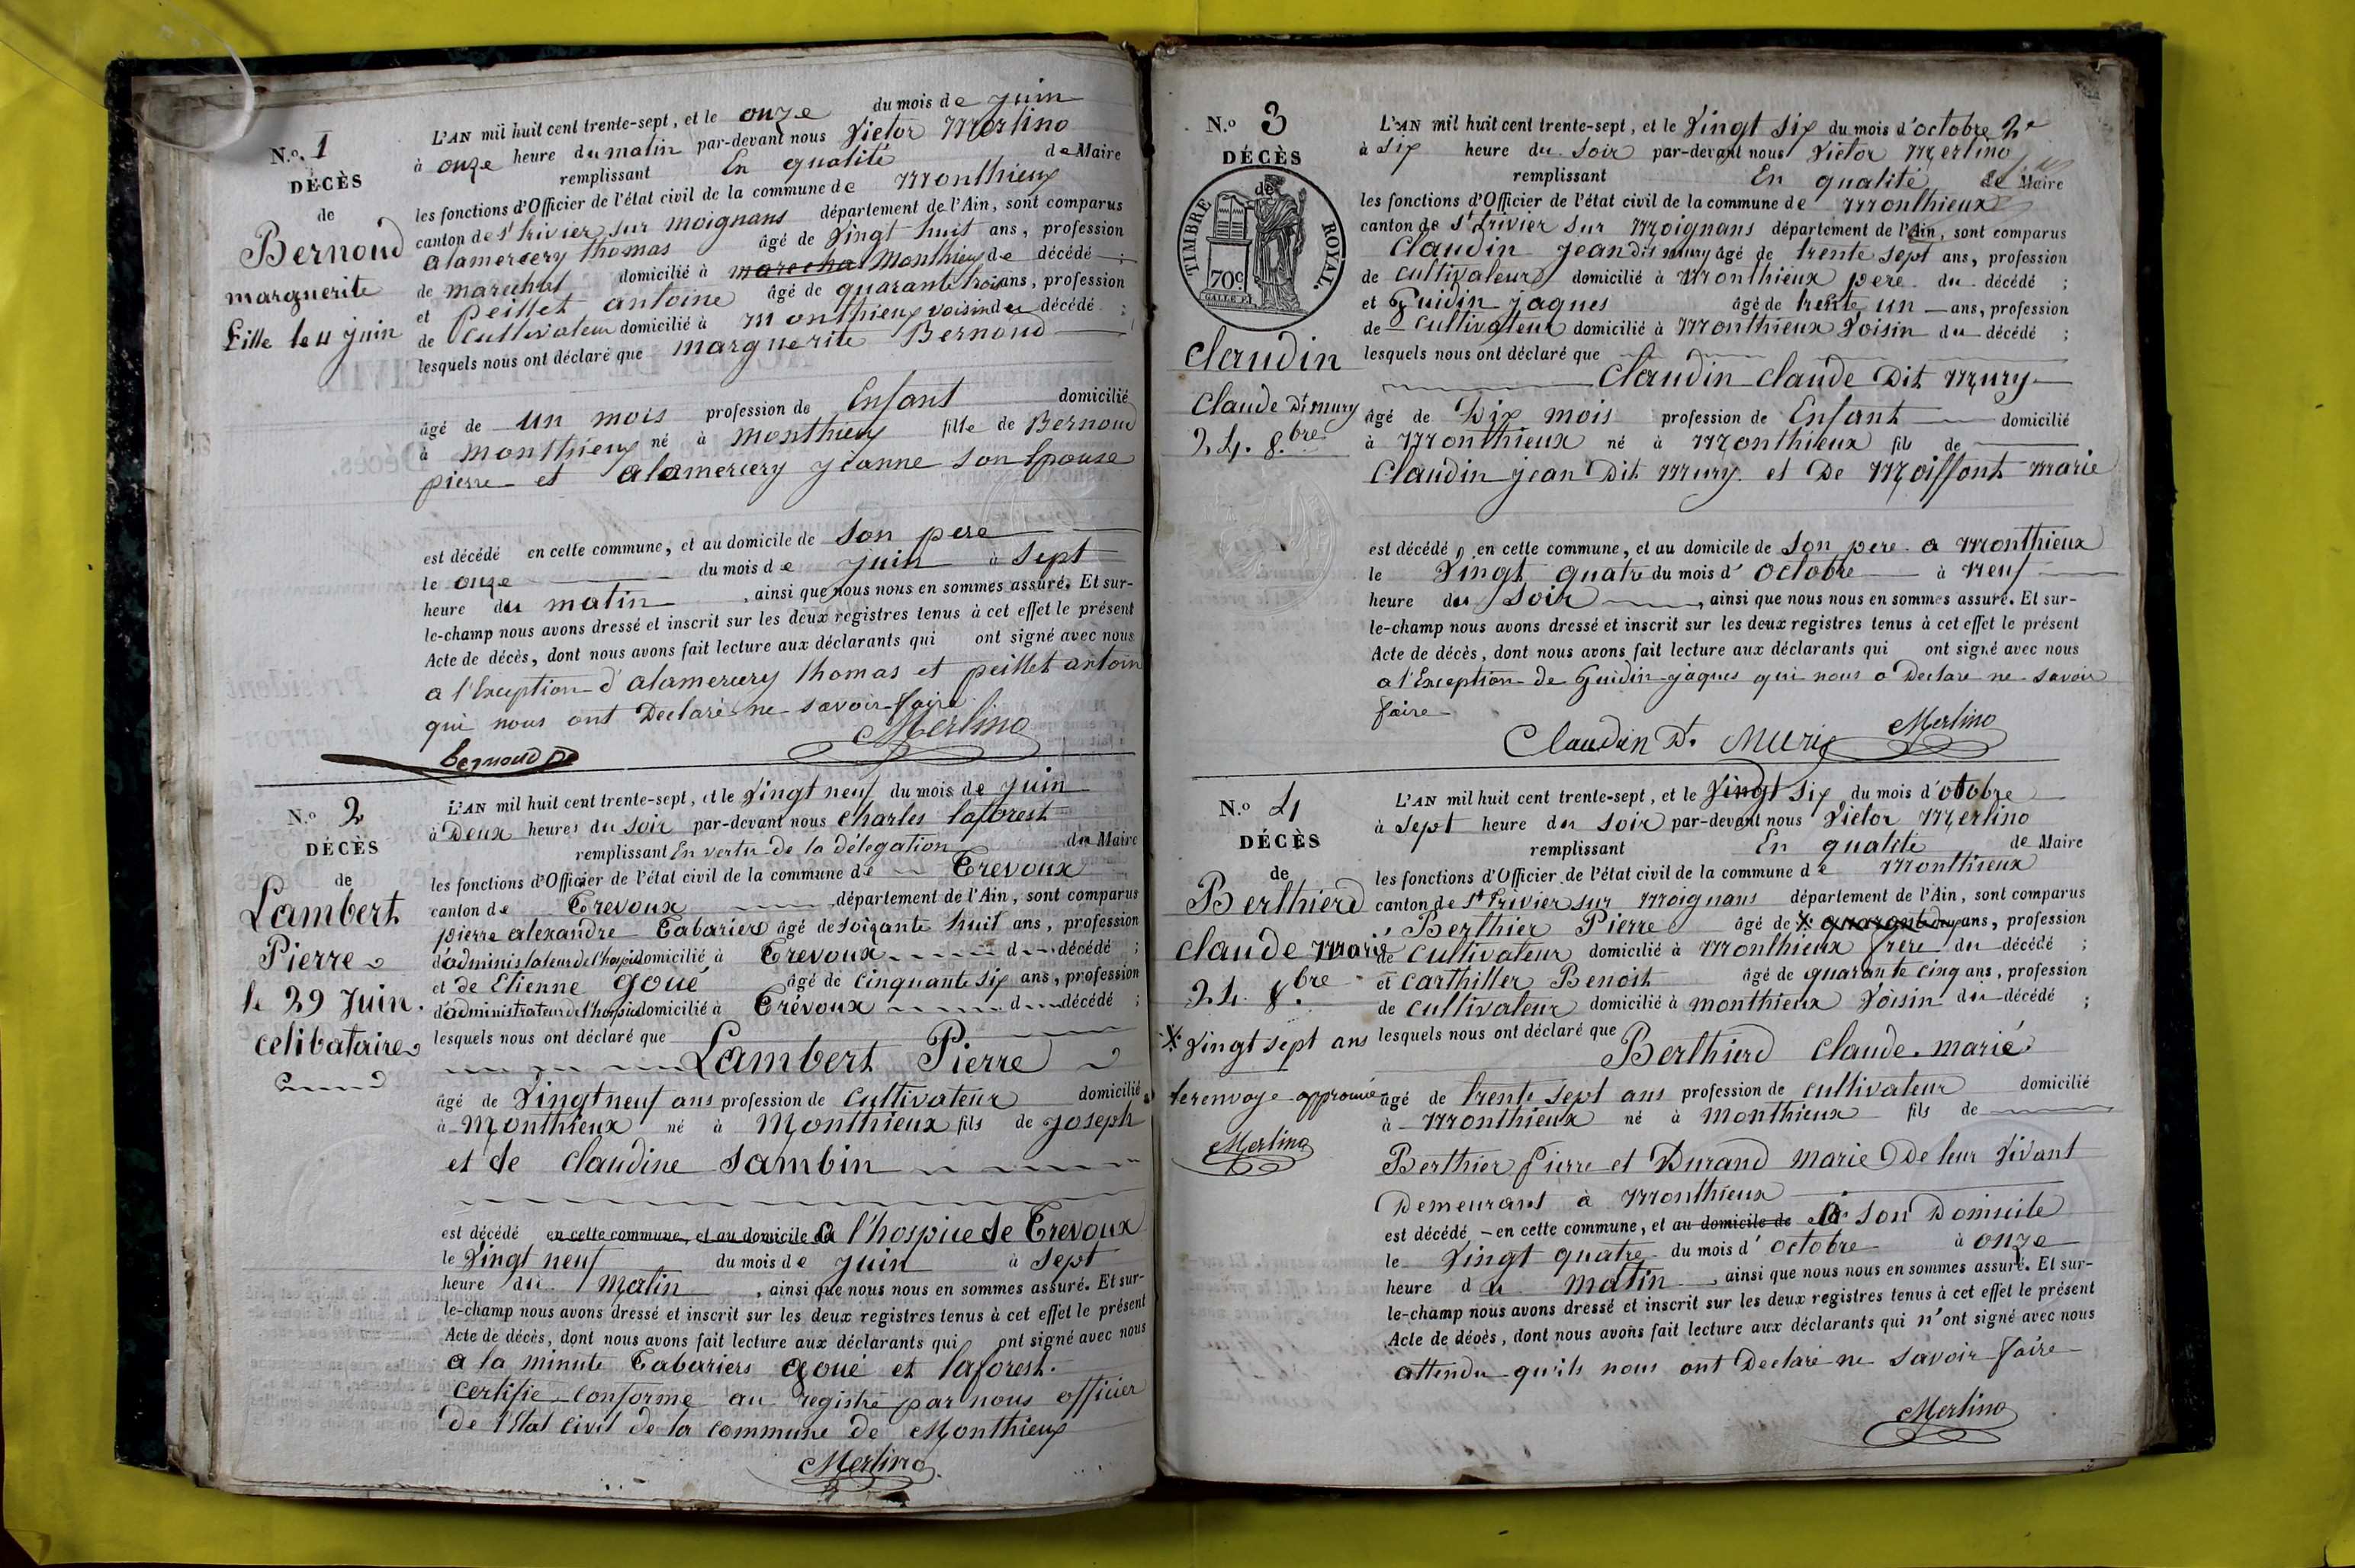 N.o 1
DÉCÈS
de
Bernoud
marguerite
fille le 11 juin
L'AN mil huit cent trente-sept, et le onze du mois de juin
à onze heure du matin par-devant nous Victor Merlino
remplissant En qualité de Maire
les fonctions d'Officier de l'état civil de la commune de Monthieux
canton de St trivier sur moignans département de l'Ain, sont comparus
alamercery thomas âgé de Vingt huit ans, profession
de marechal domicilié à marechal Monthieux de décédé ;
et peillet antoine âgé de quarante trois ans, profession
de Cultivateur domicilié à Monthieux voisin de décédé ;
lesquels nous ont déclaré que marguerite Bernoud
âgé de un mois profession de Enfant domicilié
à monthieux né à monthieux fille de Bernoud
pierre et alamercery jeanne son Epouse
est décédé en cette commune, et au domicile de son pere
le onze du mois de juin à sept
heure du matin, ainsi que nous nous en sommes assuré. Et sur-
le-champ nous avons dressé et inscrit sur les deux registres tenus à cet effet le présent
Acte de décès, dont nous avons fait lecture aux déclarants qui ont signé avec nous
a l'Exception d'alamercery thomas et peillet antoin
qui nous ont Declaré ne savoir faire
Merlino
bernoud
N.o 2
DÉCÈS
de
Lambert
Pierre
le 29 Juin.
celibataire
L'AN mil huit cent trente-sept, et le Vingt neuf du mois de juin
à Deux heures du soir par-devant nous Charles laforest
remplissant En vertu de la délegation du Maire
les fonctions d'Officier de l'état civil de la commune de Trevoux
canton de Trevoux département de l'Ain, sont comparus
pierre alexandre Tabariers âgé de soixante huit ans, profession
d'administrateur de l'hospice domicilié à Trevoux d décédé ;
et de Etienne Goué âgé de cinquante six ans, profession
d'administrateur de l'hospice domicilié à Trévoux d décédé ;
lesquels nous ont déclaré que
Lambert Pierre
âgé de Vingt neuf ans profession de Cultivateur domicilié
à Monthieux né à Monthieux fils de Joseph
et de Claudine Sambin
est décédé en cette commune, et au domicile de a l'hospice de Trevoux
le Vingt neuf du mois de juin à sept
heure du Matin, ainsi que nous nous en sommes assuré. Et sur-
le-champ nous avons dressé et inscrit sur les deux registres tenus à cet effet le présent
Acte de décès, dont nous avons fait lecture aux déclarants qui ont signé avec nous
a la minute Tabariers Goué et laforest.
certifie conforme au registre par nous officier
de l'Etat civil de la commune de Monthieux
Merlino
N.o 3
DÉCÈS
de
TIMBRE ROYAL.
70c
Claudin
Claude Dt mury
24. 8.bre
L'AN mil huit cent trente-sept, et le Vingt six du mois d'octobre
à six heure du soir par-devant nous Victor Merlino
remplissant En qualité de Maire
les fonctions d'Officier de l'état civil de la commune de Monthieux
canton de St trivier sur Moignans département de l'Ain, sont comparus
Claudin jean dit mury âgé de trente sept ans, profession
de Cultivateur domicilié à Monthieux pere du décédé ;
et Guidin jaques âgé de trente un ans, profession
de Cultivateur domicilié à Monthieux Voisin du décédé ;
lesquels nous ont déclaré que
Claudin Claude Dit Mury
âgé de Dix mois profession de Enfant domicilié
à Monthieux né à Monthieux fils de
Claudin jean Dit Mury et De Moiffont marie
est décédé en cette commune, et au domicile de son pere a Monthieux
le Vingt quatre du mois d'Octobre à neuf
heure du soir, ainsi que nous nous en sommes assuré. Et sur-
le-champ nous avons dressé et inscrit sur les deux registres tenus à cet effet le présent
Acte de décès, dont nous avons fait lecture aux déclarants qui ont signé avec nous
a l'Exception de Guidin jaques qui nous a Declaré ne savoir
faire
Claudin Dt Murie Merlino
N.o 4
DÉCÈS
de
Berthierd
Claude Marie
24. 8.bre
X Vingt sept ans
le renvoye approuvé
Merlino
L'AN mil huit cent trente-sept, et le Vingt six du mois d'otobre
à sept heure du soir par-devant nous Victor Merlino
remplissant En qualité de Maire
les fonctions d'Officier de l'état civil de la commune de Monthieux
canton de St trivier sur Moignans département de l'Ain, sont comparus
Berthier Pierre âgé de X quarante deux ans, profession
de Cultivateur domicilié à Monthieux frere du décédé ;
et Carthiller Benoit âgé de quarante cinq ans, profession
de Cultivateur domicilié à monthieux Voisin du décédé ;
lesquels nous ont déclaré que
Berthierd Claude. marie.
âgé de trente sept ans profession de Cultivateur domicilié
à Monthieux né à Monthieux fils de
Berthier Pierre et Durand Marie De leur Vivant
Demeurant à Monthieux
est décédé en cette commune, et au domicile de à son Domicile
le Vingt quatre du mois d'Octobre à onze
heure du matin, ainsi que nous nous en sommes assuré. Et sur-
le-champ nous avons dressé et inscrit sur les deux registres tenus à cet effet le présent
Acte de décès, dont nous avons fait lecture aux déclarants qui n'ont signé avec nous
attendu qu'ils nous ont Declaré ne savoir faire
Merlino